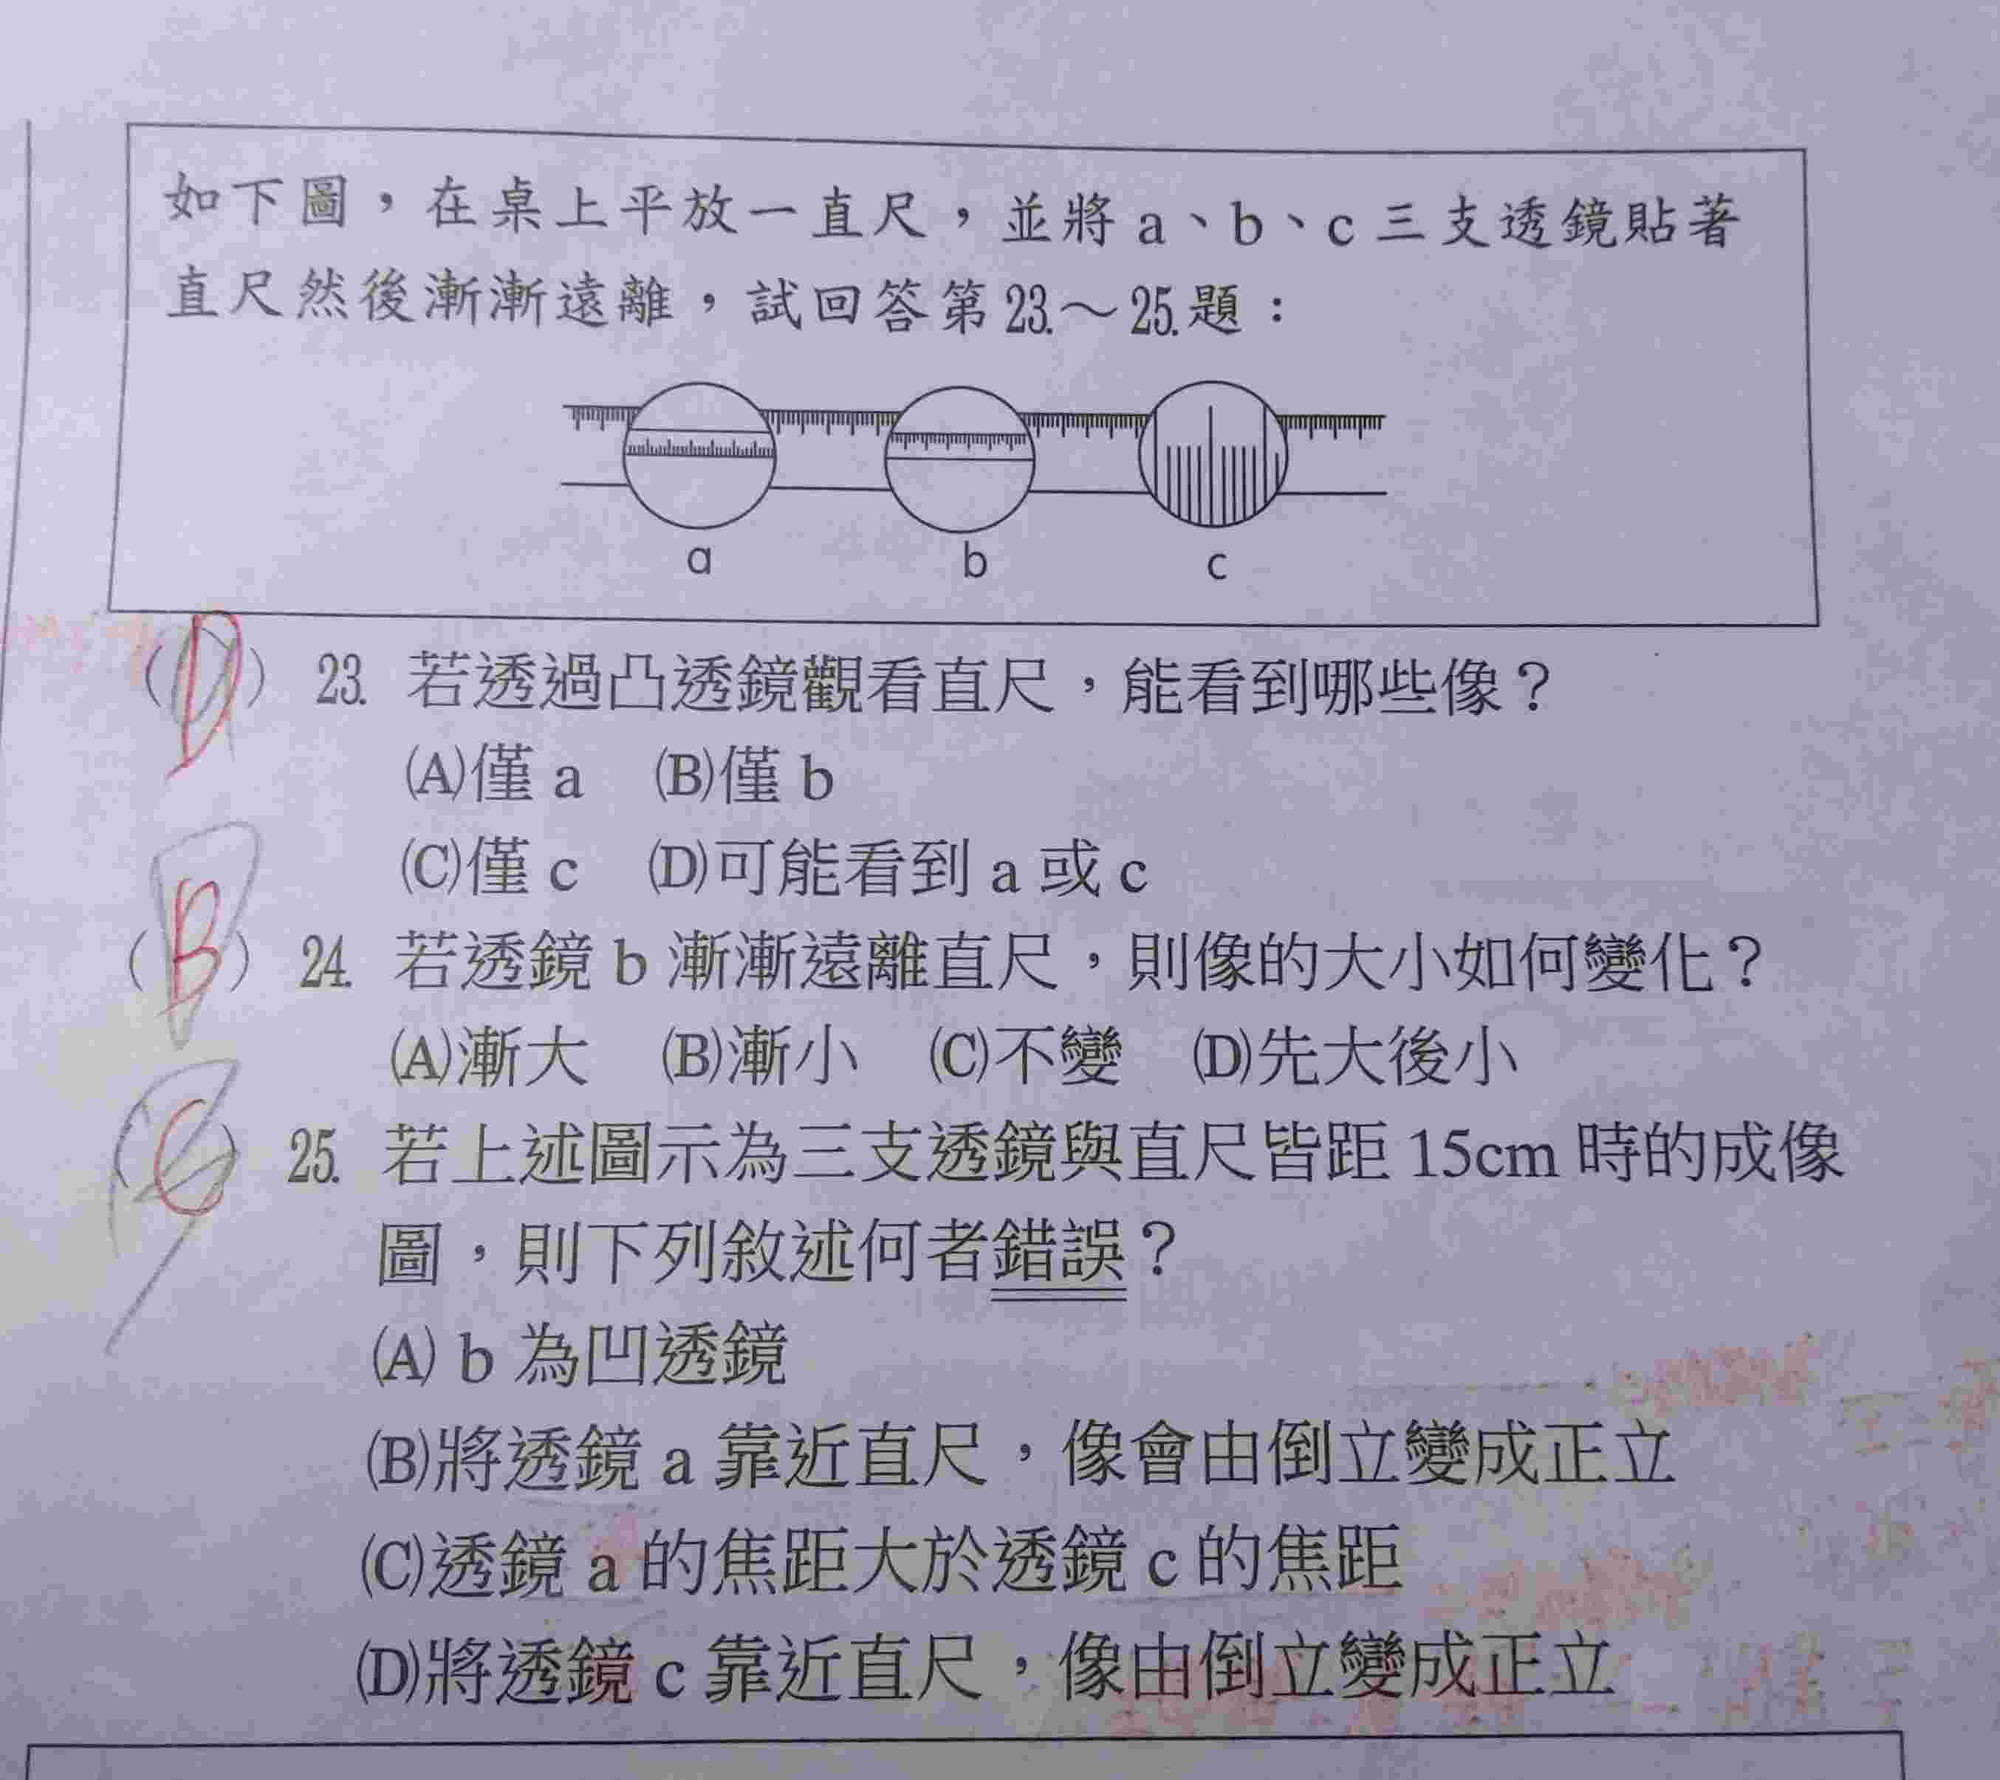 如下圖，在桌上平放一直尺，並將 a、b、c 三支透鏡貼著
直尺然後漸漸遠離，試回答第 23.～25. 題：
a b c
(D) 23. 若透過凸透鏡觀看直尺，能看到哪些像？
(A)僅 a (B)僅 b
(C)僅 c (D)可能看到 a 或 c
(B) 24. 若透鏡 b 漸漸遠離直尺，則像的大小如何變化？
(A)漸大 (B)漸小 (C)不變 (D)先大後小
(C) 25. 若上述圖示為三支透鏡與直尺皆距 15cm 時的成像
圖，則下列敘述何者錯誤？
(A) b 為凹透鏡
(B)將透鏡 a 靠近直尺，像會由倒立變成正立
(C)透鏡 a 的焦距大於透鏡 c 的焦距
(D)將透鏡 c 靠近直尺，像由倒立變成正立